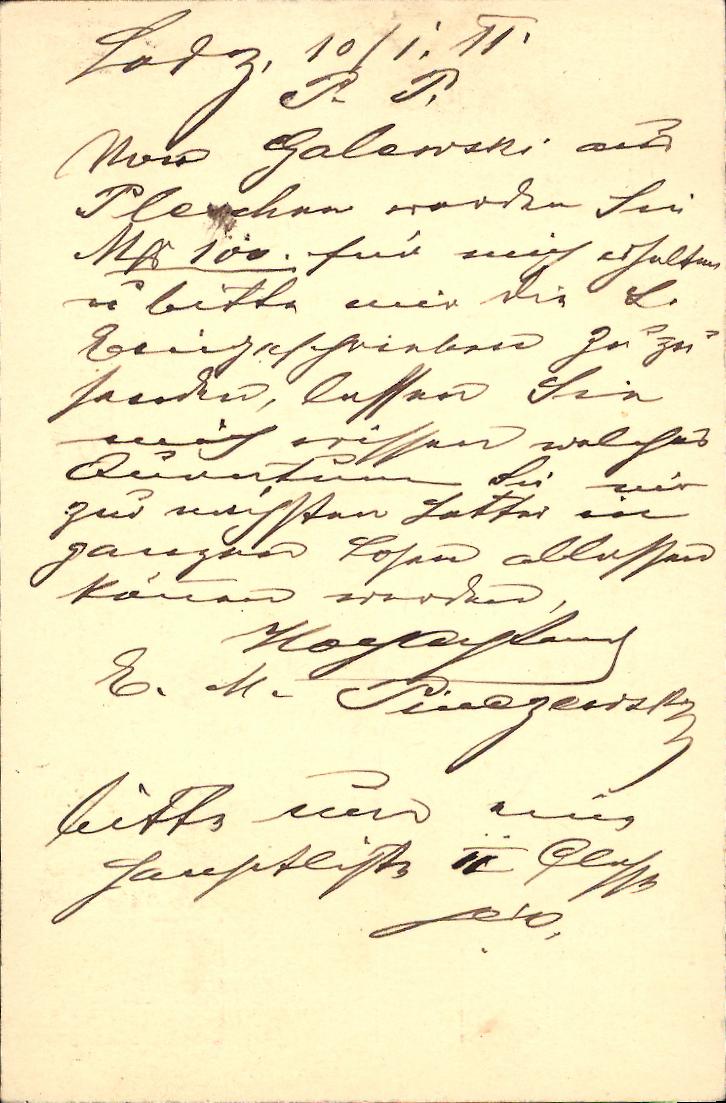 Lodz, 10/I. 11.
P. P.
Von Galewski aus
Pleschen werden Sie
Mk 100. für mich erhalten
u bitte mir die L.
Eingeschrieben zu zu
senden, lassen Sie
mich wissen welches
Quantum Sie mir
zur nächsten Lotterie in
ganzen Losen ablassen
können werden,
Hochachtend
E. M. Pinczewski
bitte um eine
Hauptliste II Classe